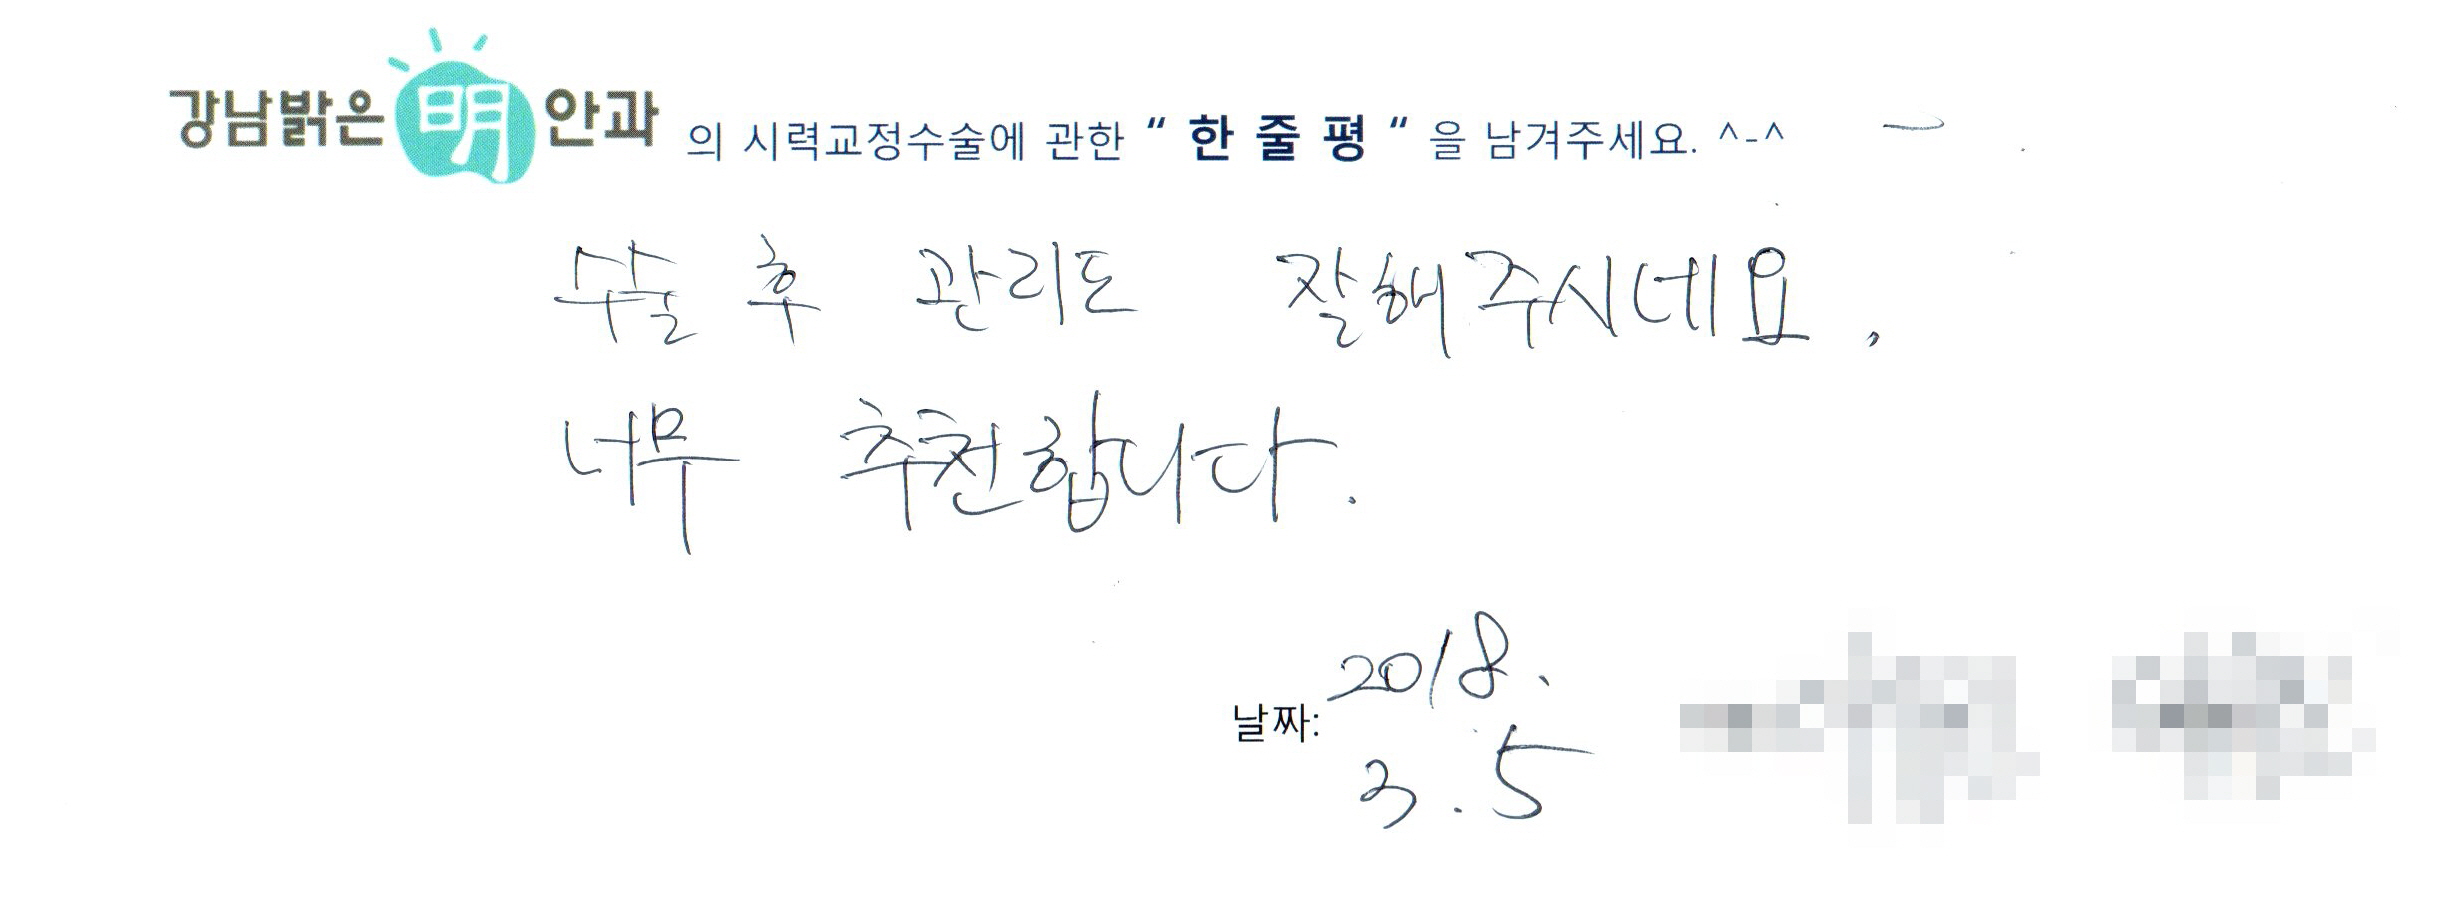 강남밝은 明 안과 의 시력교정수술에 관한 “ 한 줄 평 “ 을 남겨주세요. ^-^
수술 후 관리도 잘해주시네요.
너무 추천합니다.
날짜: 2018.
3.5